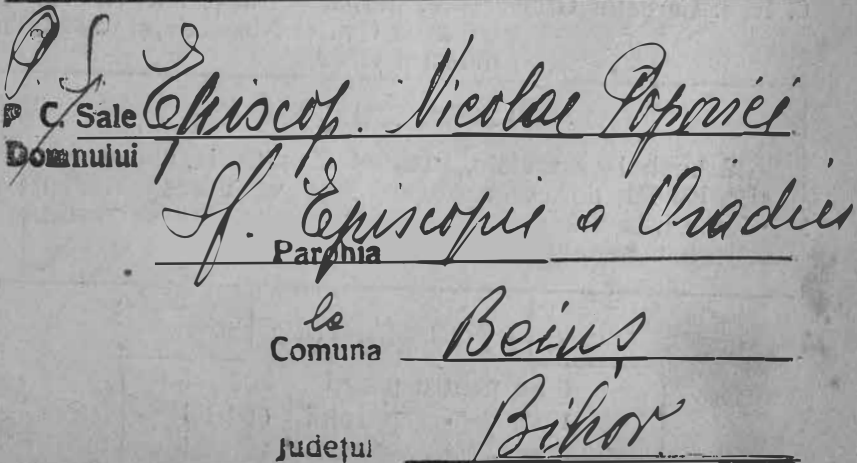 P. S.
P C. Sale Episcop. Nicolae Popovici
Domnului
Sf. Episcopie a Oradiei
Parohia
la
Comuna Beiuș
Județul Bihor